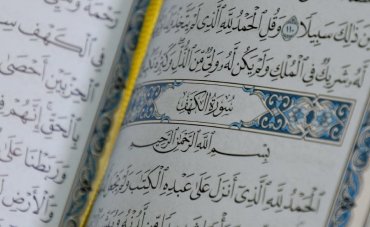 ذَٰلِكَ سَبِيلًا ١١٠ وَقُلِ ٱلْحَمْدُ لِلَّهِ ٱلَّذِى لَمْ يَتَّخِذْ
لَهُۥ شَرِيكٌ فِى ٱلْمُلْكِ وَلَمْ يَكُن لَّهُۥ وَلِىٌّ مِّنَ ٱلذُّلِّ
سُورَةُ الكَهْفِ
بِسْمِ ٱللَّهِ ٱلرَّحْمَٰنِ ٱلرَّحِيمِ
ٱلْحَمْدُ لِلَّهِ ٱلَّذِىٓ أَنزَلَ عَلَىٰ عَبْدِهِ ٱلْكِتَٰبَ وَلَمْ
فِى ٱلْكَهْفِ
ٱلْحِزْبَيْنِ أَحْصَىٰ
بِٱلْحَقِّ إِنَّهُمْ
وَرَبَطْنَا
وَٱلْأَرْضِ